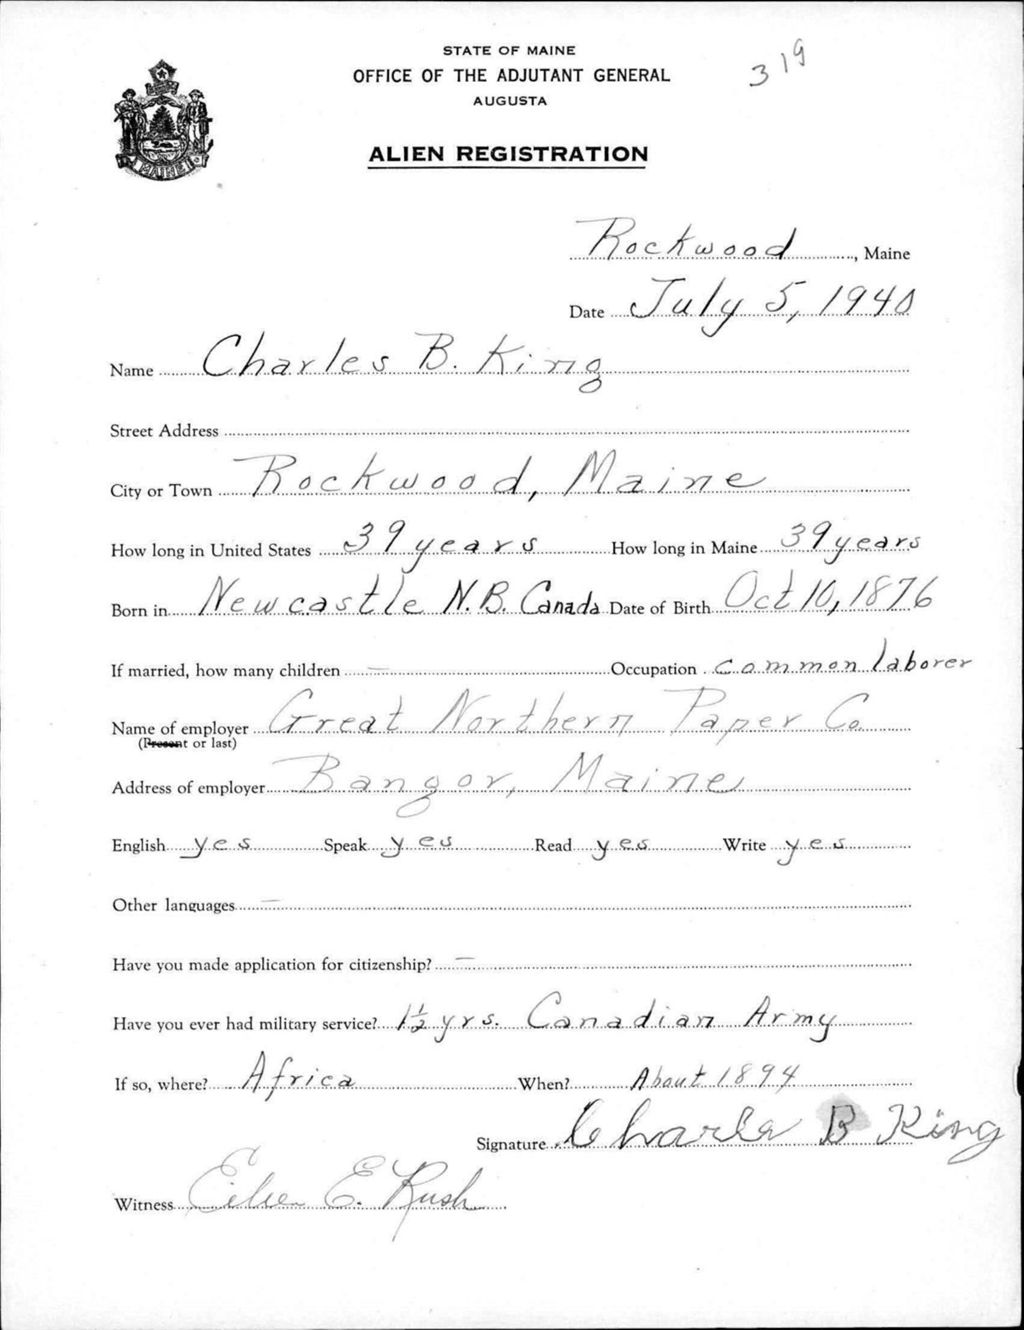 319
STATE OF MAINE
OFFICE OF THE ADJUTANT GENERAL
AUGUSTA
MAINE
ALIEN REGISTRATION
Rockwood, Maine
Date July 5, 1940
Name Charles B. King
Street Address
City or Town Rockwood, Maine
How long in United States 39 years How long in Maine 39 years
Born in Newcastle N.B. Canada Date of Birth Oct 10, 1876
If married, how many children — Occupation common laborer
Name of employer Great Northern Paper Co.
(Present or last)
Address of employer Bangor, Maine
English yes Speak yes Read yes Write yes
Other languages —
Have you made application for citizenship? —
Have you ever had military service? 1½ yrs. Canadian Army
If so, where? Africa When? About 1894
Signature Charles B King
Witness E. Rush